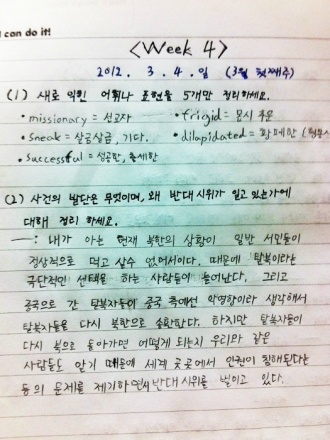 I can do it!
<Week 4>
2012. 3. 4. 일 (3월 첫째주)
(1) 새로 익힌 어휘나 표현을 5개만 정리하세요.
• missionary = 선교자 • frigid = 몹시 추운
• sneak = 살금살금, 기다. • dilapidated = 황폐한
• successful = 성공한, 출세한
(2) 사건의 발단은 무엇이며, 왜 반대 시위가 일고 있는가에
대해 정리 하세요.
—: 내가 아는 현재 북한의 상황이 일반 서민들이
정상적으로 먹고 살수 없어서이다. 때문에 '탈북'이라는
극단적인 선택을 하는 사람들이 늘어난다. 그리고
중국으로 간 탈북자들이 중국 측에선 악영향이라 생각해서
탈북자들을 다시 북한으로 송환하다. 하지만 탈북자들이
다시 북으로 돌아가면 어떻게 되는지 우리와 같은
사람들도 알기 때문에 세계 곳곳에서 인권이 침해된다는
등의 문제를 제기하면서 반대 시위를 벌이고 있다.